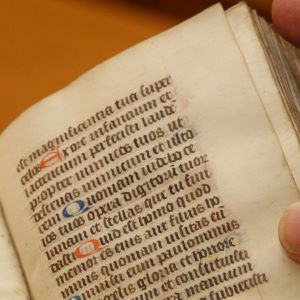 est magnificencia tua super
celos Ex ore infancium et
lactencium perfecisti laude
propter inimicos tuos ut
destruas inimicum et ulto
Quoniam uidebo ce
los tuos opera digitoru tuor
lunam et stellas que tu fun
dasti Quid est homo quod
memor es eius aut filius ho
minis quoniam uisitas eu
eum paulominus
angelis gloria et honore
eum et constituisti
manuum